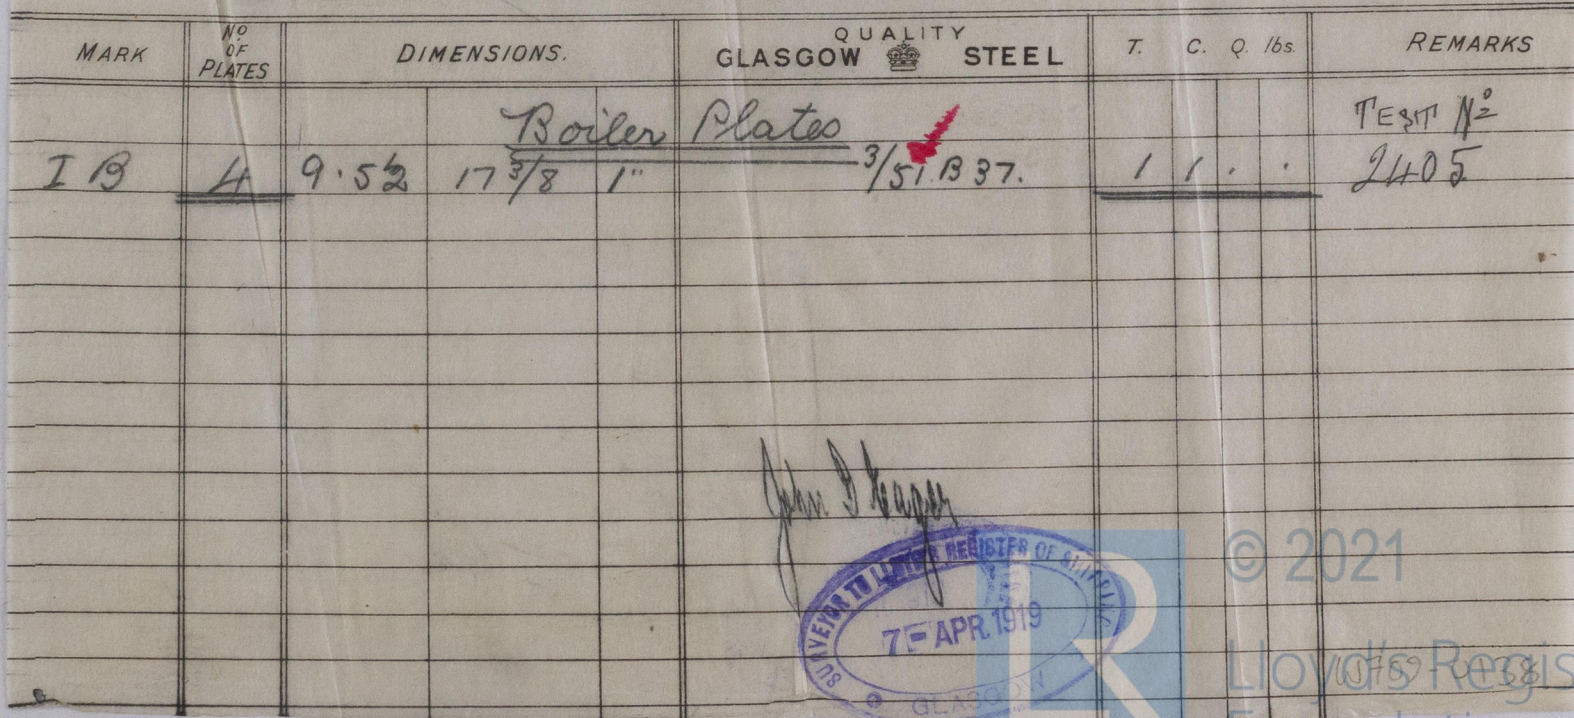 MARK Nº OF PLATES DIMENSIONS. QUALITY GLASGOW STEEL T. C. Q. lbs. REMARKS
Boiler Plates TEST Nº
I B 4 9.5½ 17 3/8 1" 3/51.B 37. 1 1 . . 2405
John
SURVEYOR TO LLOYD'S REGISTER OF SHIPPING
7- APR. 1919
GLASGOW
© 2021
Lloyd's Regis